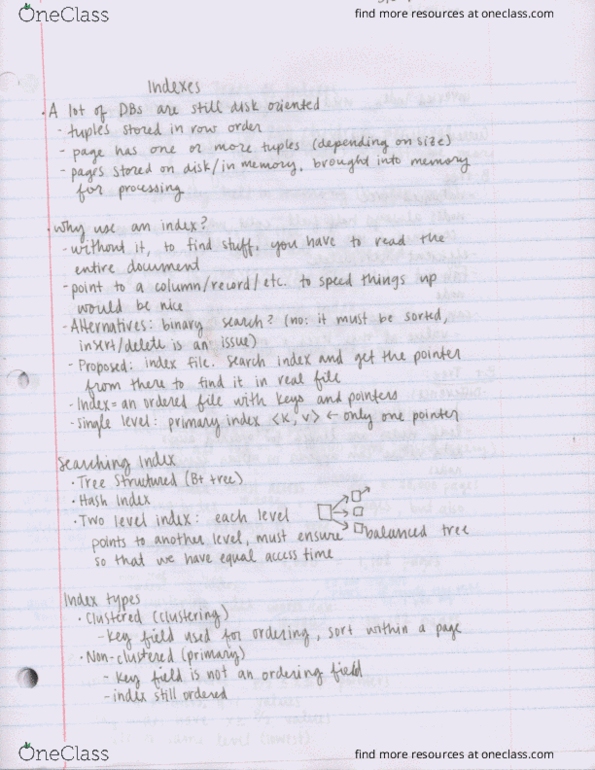 OneClass
find more resources at oneclass.com
Indexes
· A lot of DBs are still disk oriented
- tuples stored in row order
- page has one or more tuples (depending on size)
- pages stored on disk/in memory, brought into memory
for processing
· Why use an index?
- without it, to find stuff, you have to read the
entire document
- point to a column/record/etc. to speed things up
would be nice
- Alternatives: binary search? (no: it must be sorted,
insert/delete is an issue)
- Proposed: index file. Search index and get the pointer
from there to find it in real file
- Index = an ordered file with keys and pointers
- Single level: primary index <K, V> ← only one pointer
Searching Index
· Tree Structured (B+ tree)
· Hash Index
· Two level index: each level
points to another level, must ensure balanced tree
so that we have equal access time
Index types
· Clustered (clustering)
- Key field used for ordering, sort within a page
· Non-clustered (primary)
- Key field is not an ordering field
- index still ordered
OneClass
find more resources at oneclass.com